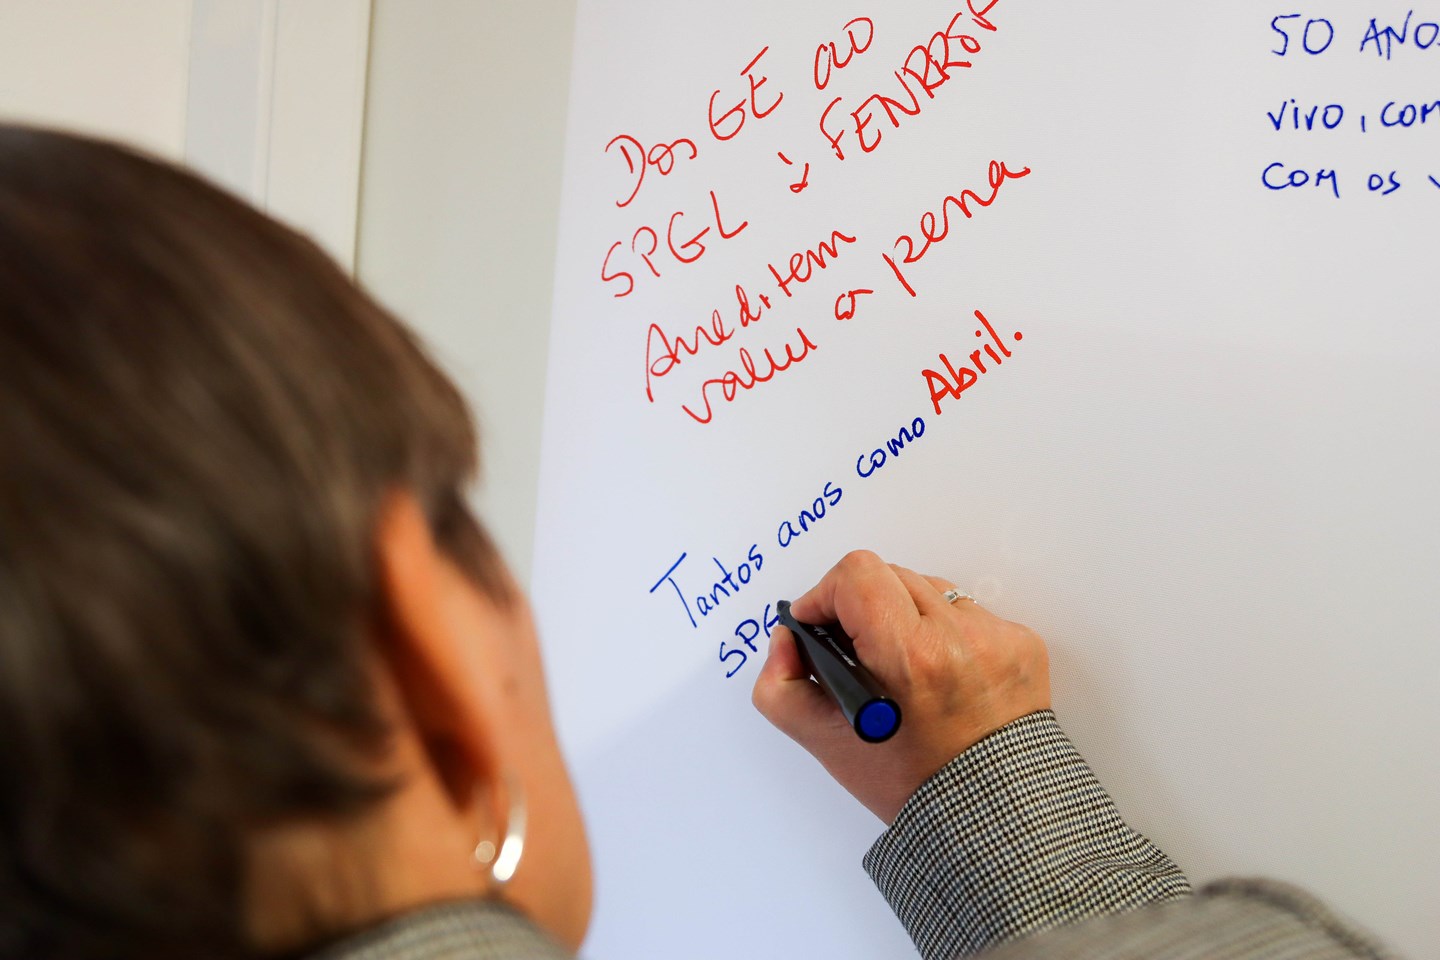 Dos GE ao
SPGL à FENPROF
Acreditem
valeu a pena
Tantos anos como Abril.
SPG
50 ANOS
VIVO, COM
COM OS